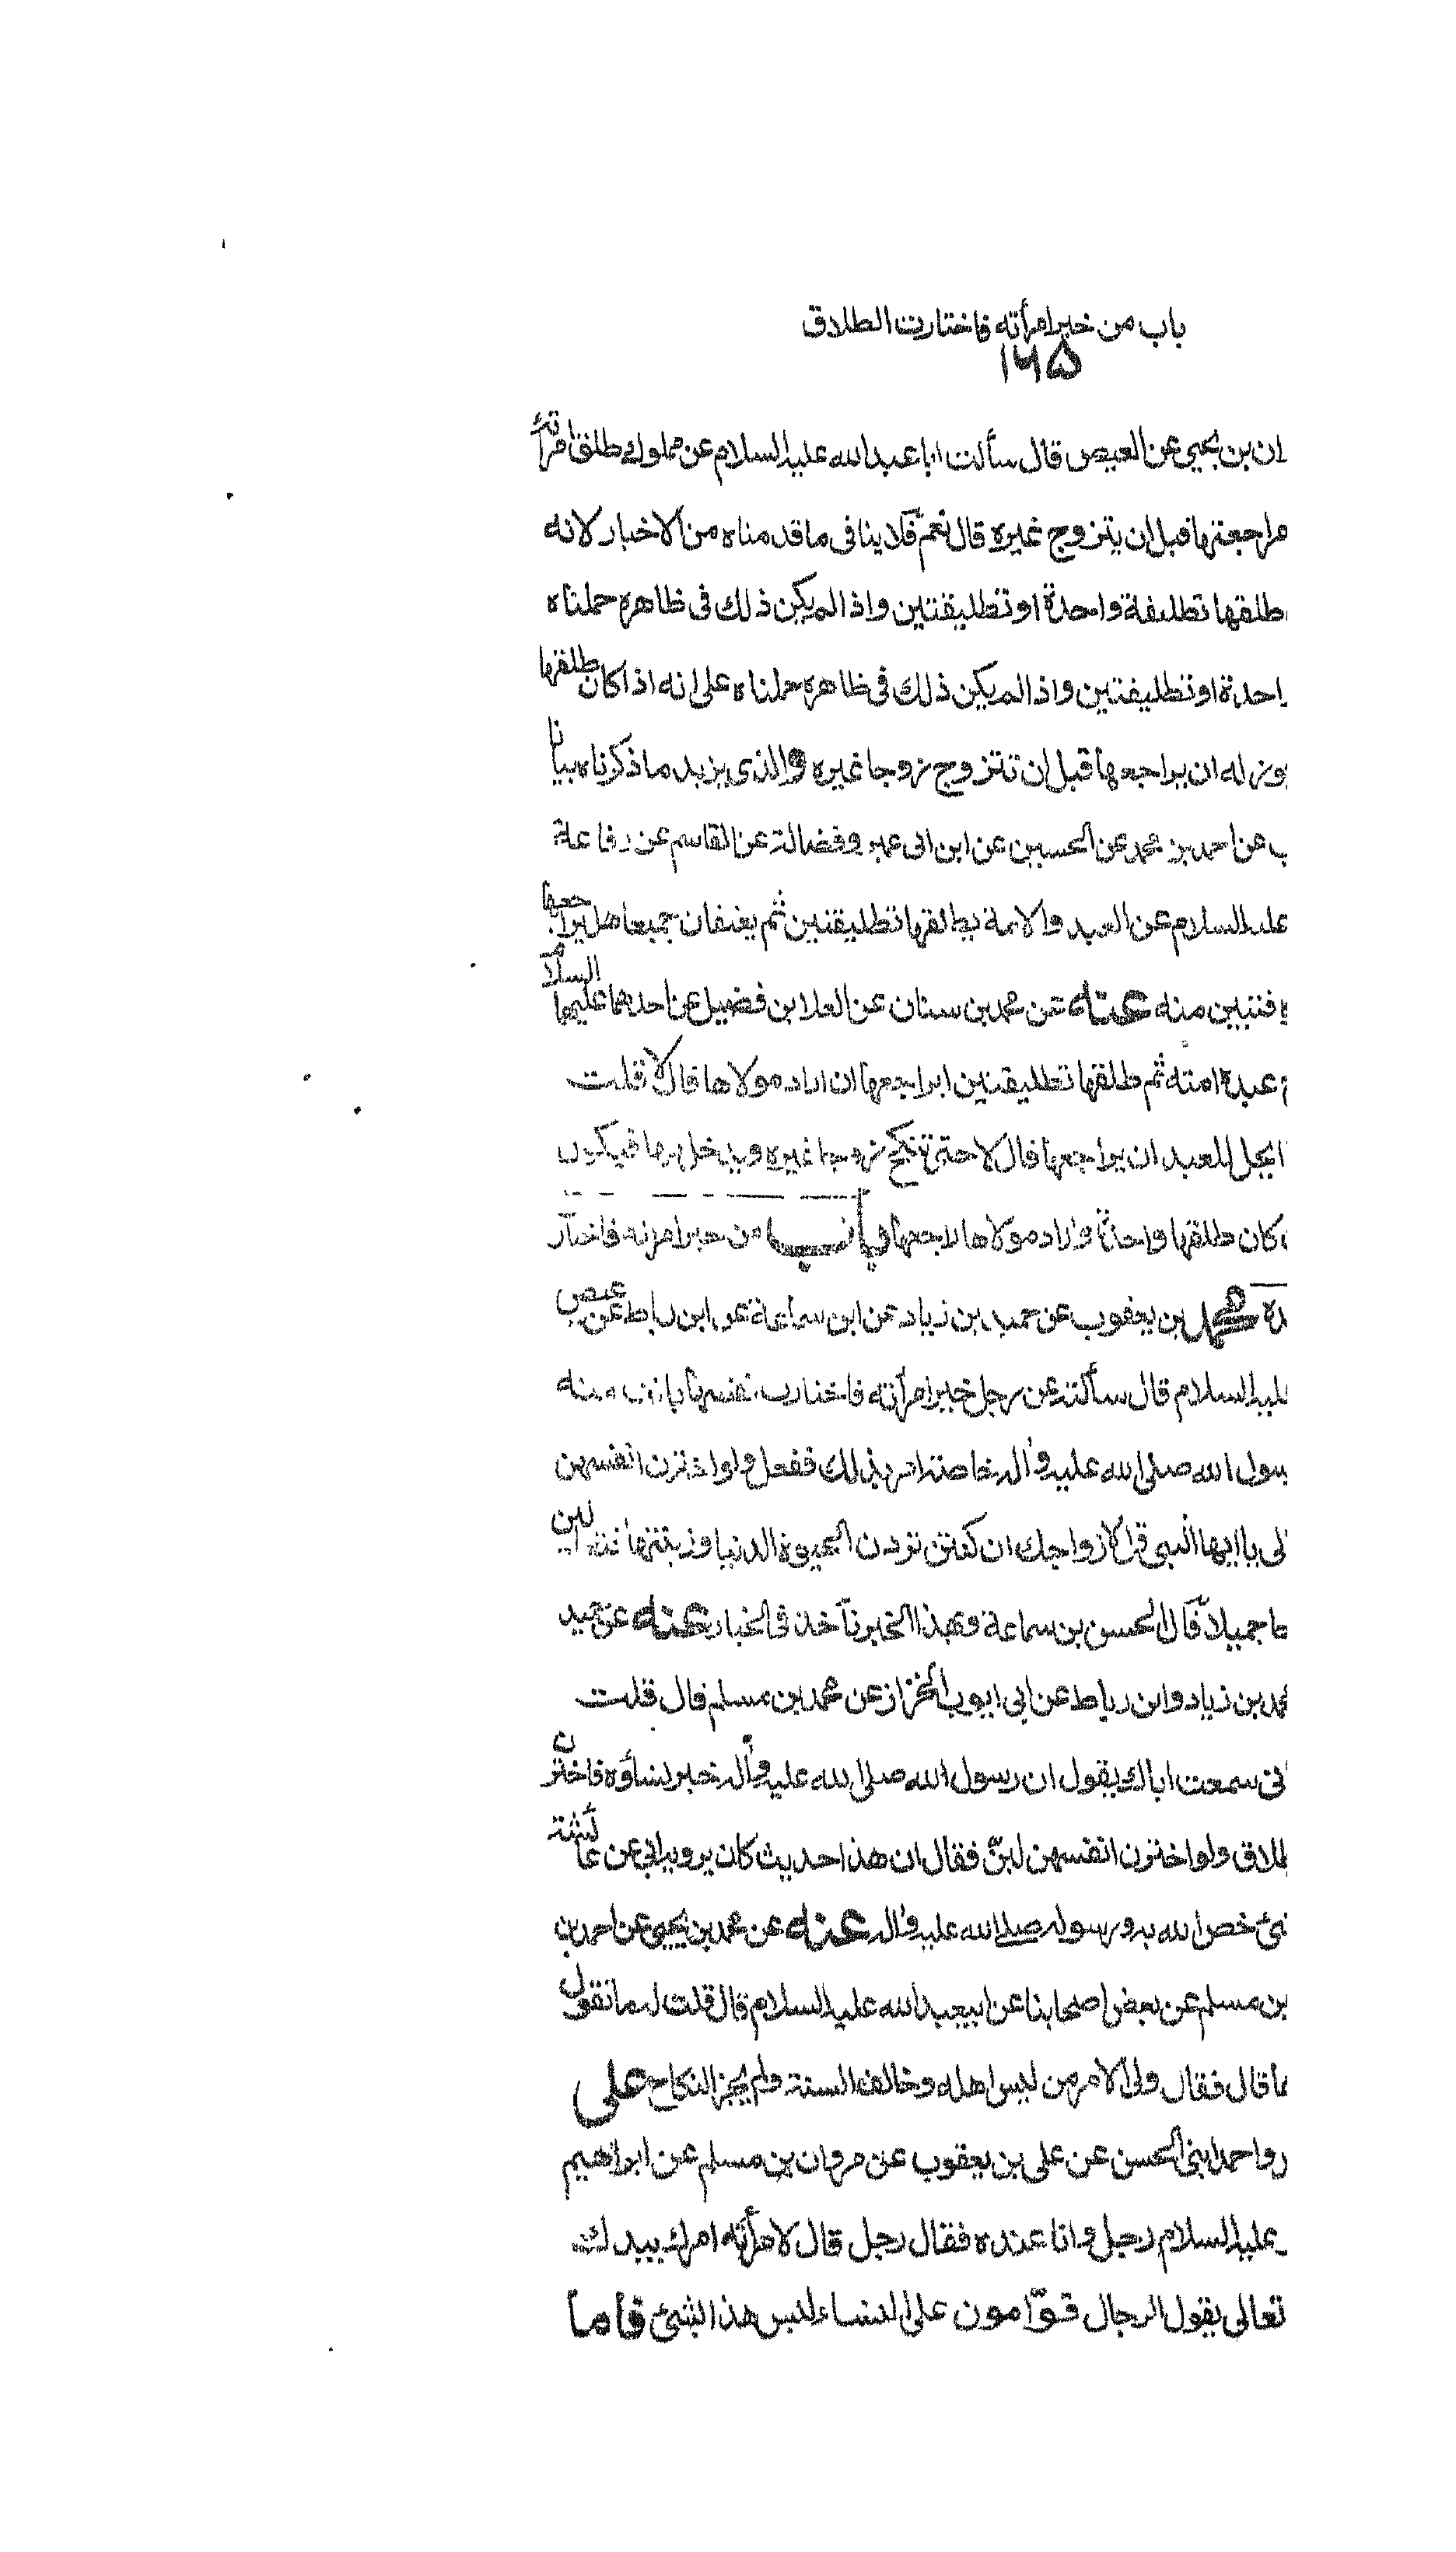 باب من خير امرأته فاختارت الطلاق
١٦٥
ان بن يحيى عن العيص قال سألت ابا عبد الله عليه السلام عن مملوك طلق امرأته
مراجعتها قبل ان يتزوج غيره قال نعم فلا ينافى ما قدمناه من الاخبار لانه
طلقها تطليقة واحدة او تطليقتين واذا لم يكن ذلك فى ظاهره حملناه
احدة او تطليقتين واذا لم يكن ذلك فى ظاهره حملناه على انه اذا كان طلقها
وز له ان يراجعها قبل ان تتزوج زوجا غيره والذى يزيد ما ذكرناه بيانا
ب عن احمد بن محمد عن الحسين عن ابن ابى عمير وفضالة عن القاسم عن رفاعة
عليه السلام عن العبد والامة يطلقها تطليقتين ثم يعتقان جميعا هل يراجعها
ه فتبين منه عنه عن محمد بن سنان عن العلا بن فضيل عن احدهما عليهما السلام
عبده امته ثم طلقها تطليقتين ايراجعها ان اراد مولاها قال لا قلت
ا يحل للعبد ان يراجعها قال لا حتى تنكح زوجا غيره ويدخل بها فيكون
كان طلقها واحدة واراد مولاها راجعها باب من خير امراته فاختار
ده محمد بن يعقوب عن حميد بن زياد عن ابن سماعة عن ابن رباط عن عيص
عليه السلام قال سألته عن رجل خير امرأته فاختارت نفسها بانت منه
سول الله صلى الله عليه وآله خاصة امر بذلك ففعل ولو اخترن انفسهن
لى يا ايها النبى قل لازواجك ان كنتن تردن الحيوة الدنيا وزينتها فتعالين
حا جميلا قال الحسن بن سماعة وبهذا الخبر نأخذ فى الخيار عنه عن حميد
مد بن زياد وابن رباط عن ابى ايوب الخزاز عن محمد بن مسلم قال قلت
نى سمعت اباك يقول ان رسول الله صلى الله عليه وآله خير نساؤه فاخترن
لطلاق ولو اخترن انفسهن لبن فقال ان هذا حديث كان يرويه ابى عن عائشة
شئ خص الله به رسوله صلى الله عليه وآله عنه عن محمد بن يحيى عن احمد بن
بن مسلم عن بعض اصحابنا عن ابيعبد الله عليه السلام قال قلت له ما تقول
ما قال فقال ولى الامر من ليس اهله وخالف السنة ولم يجز النكاح على
واحمد ابنى الحسن عن على بن يعقوب عن مروان بن مسلم عن ابراهيم
عليه السلام رجل وانا عنده فقال رجل قال لامرأته امرك بيدك
تعالى يقول الرجال قوّامون على النساء ليس هذا بشئ فاما